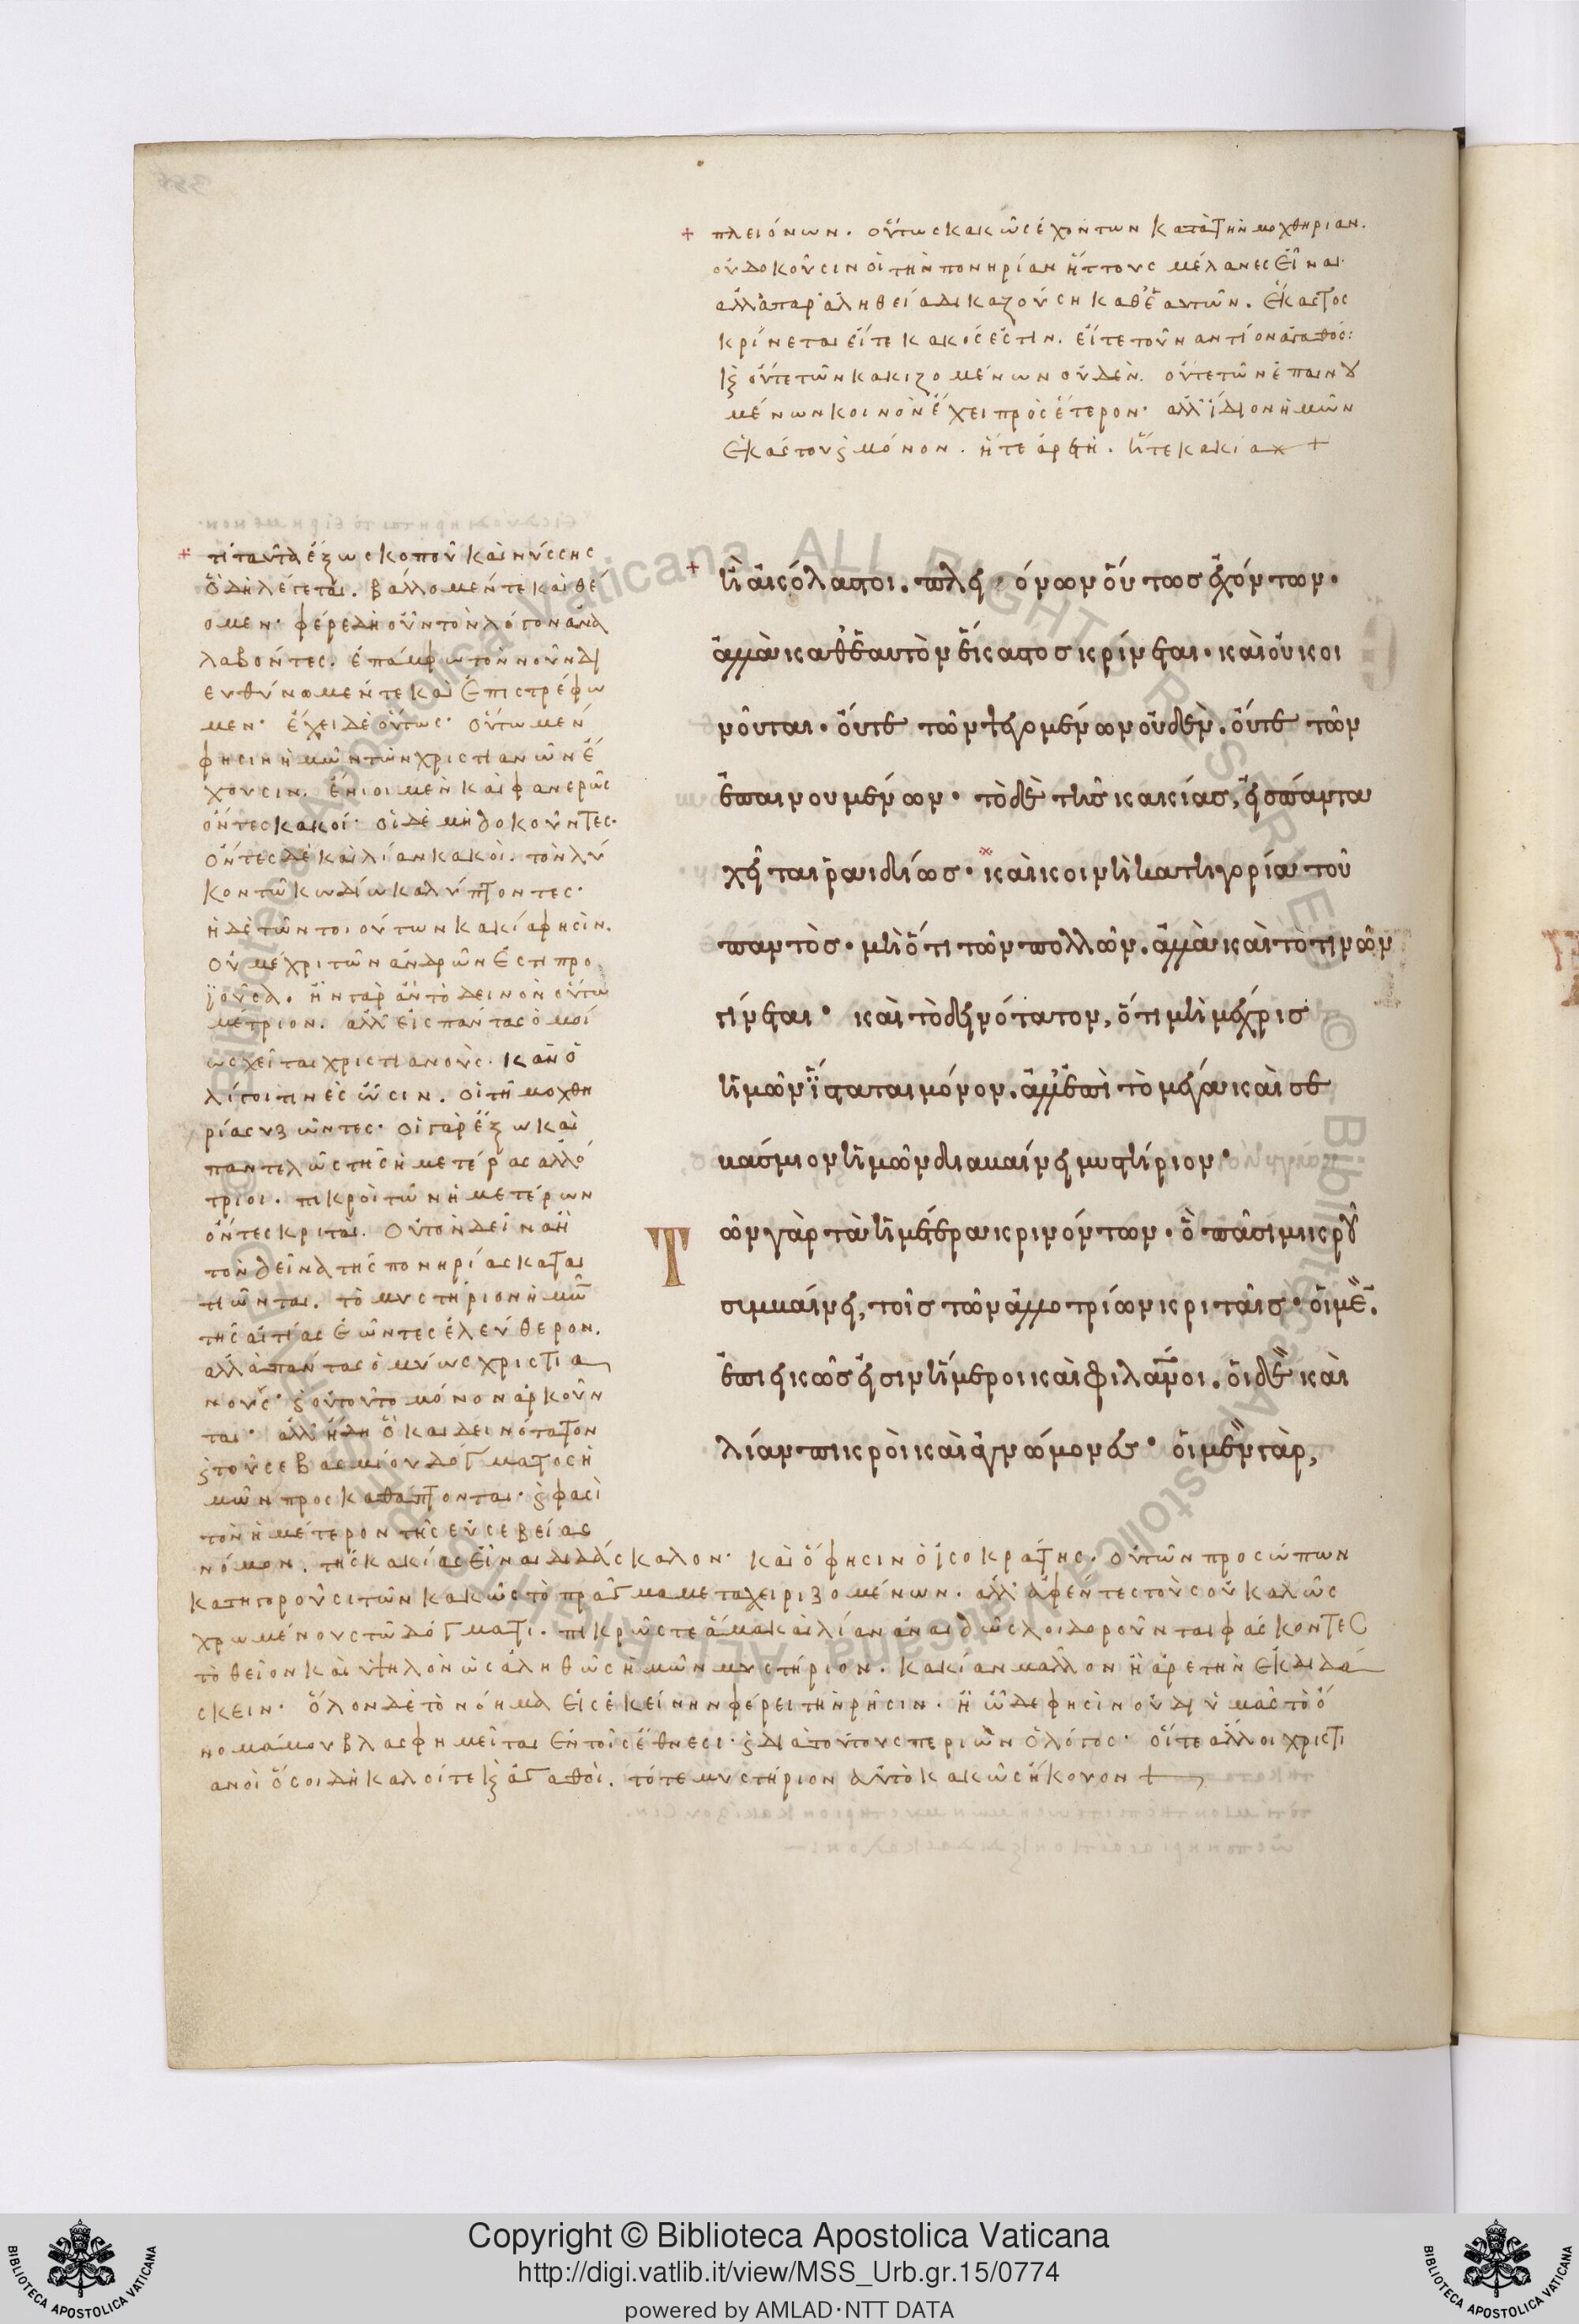 + πλειόνων. οὕτως κακῶς ἐχόντων κατὰ τὴν μοχθηρίαν.
οὐ δοκοῦσιν οἱ τὴν πονηρίαν ἥττους μέλανες εἶναι·
ἀλλὰ παρ' ἀληθεία δικαζούση καθ' ἑαυτῶν. ἕκαστος
κρίνεται εἴτε κακός ἐστιν. εἴτε τοὐναντίον ἀγαθός:
καὶ οὔτε τῶν κακιζομένων οὐδέν. οὔτε τῶν ἐπαινου
μένων κοινὸν ἔχει πρὸς ἕτερον· ἀλλ' ἴδιον ἡμῶν
ἑκάστου καὶ μόνον. ἥτε ἀρετή. ἥτε κακία +
+ τί ταῦτα ἔξω σκοποῦ καὶ νύσσης
ὃ δὴ λέγεται. βάλλομέν τε καὶ θέ
ομεν· φέρε δὴ οὖν τὸν λόγον ἀνα
λαβόντες. ἐπ' ἄμφω τὸν νοῦν δι
ευθύνωμέν τε καὶ ἐπιστρέφω
μεν· ἔχει δὲ οὕτως· οὕτω μέν
φησιν ἡμῶν τῶν χριστιανῶν ἔ
χουσιν. ἔνιοι μὲν καὶ φανερῶς
ὄντες κακοί· οἱ δὲ μὴ δοκοῦντες·
ὄντες δὲ καὶ λίαν κακοί. τὸν λύ
κον τῶ κωδίω καλύπτοντες·
ἡ δὲ τῶν τοιούτων κακία φησίν.
οὐ μέχρι τῶν ἀνδρῶν ἐστι προ
ϊοῦσα. ἦν γὰρ ἂν τὸ δεινὸν οὕτω
μέτριον. ἀλλ' εἰς πάντας ὁμοί
ως χεῖται χριστιανούς. κἂν ὀ
λίγοι τινὲς ὦσιν. οἱ τῆ μοχθη
ρία συζῶντες· οἱ γὰρ ἔξω καὶ
παντελῶς τῆς ἡμετέρας ἀλλό
τριοι. πικροὶ τῶν ἡμετέρων
ὄντες κριταί. οὐ τὸν δεῖνα ἢ
τὸν δεῖνα τῆς πονηρίας καται
τιῶνται. τὸ μυστήριον ἡμῶν
τῆς αἰτίας ἐῶντες ἐλεύθερον.
ἀλλὰ πάντας ὁμίως χριστια
νούς· καὶ οὐ τοῦτο μόνον ἀρκοῦν
ται· ἀλλ' ἤδη ὃ καὶ δεινότατον
καὶ τοῦ σεβασμίου δόγματος ἡ
μῶν προσκαθάπτονται· καὶ φασὶ
τὸν ἡμέτερον τῆς εὐσεβείας
νόμον. τῆς κακίας εἶναι διδάσκαλον· καὶ ὅ φησιν ὁ ἰσοκράτης. οὐ τῶν προσώπων
κατηγοροῦσι τῶν κακῶς τὸ πρᾶγμα μεταχειριζομένων. ἀλλ' ἀφέντες τοὺς οὐ καλῶς
χρωμένους τῶ δόγματι. πικρῶς τε ἅμα καὶ λίαν ἀναιδῶς λοιδοροῦνται φάσκοντες
τὸ θεῖον καὶ ὑψηλὸν ὡς ἀληθῶς ἡμῶν μυστήριον. κακίαν μᾶλλον ἢ ἀρετὴν ἐκδιδά
σκειν· ὅλον δὲ τὸ νόημα εἰς ἐκείνην φέρει τὴν ῥῆσιν. ἢ ὧδε φησὶν οὐ δι' ὑμᾶς τὸ ὄ
νομά μου βλασφημεῖται ἐν τοῖς ἔθνεσι· καὶ διὰ τούτους περὶ ὧν ὁ λόγος· οἵ τε ἄλλοι χριστι
ανοὶ ὅσοι δὴ καλοί τε καὶ ἀγαθοί. τό τε μυστήριον αὐτὸ κακῶς ἤκουον +
+ ἢ ἀκόλαστοι. πλειόνων οὕτως ἐχόντων·
ἀλλὰ καθ' ἑαυτὸν ἕκαστος κρίνεται· καὶ οὐ κοι
νοῦνται· οὔτε τῶν ψεγομένων οὐδέν. οὔτε τῶν
ἐπαινουμένων· τὸ δὲ τῆς κακίας, εἰς πάντα
χεῖται ῥαιδίως· καὶ κοινὴ κατηγορία τοῦ
παντὸς· μὴ ὅτι τῶν πολλῶν. ἀλλὰ καὶ τὸ τινῶν
γίνεται· καὶ τὸ δεινότατον, ὅτι μὴ μέχρις
ἡμῶν ἵσταται μόνον. ἀλλ' ἐπὶ τὸ μέγα καὶ σε
βάσμιον ἡμῶν διαβαίνει μυστήριον·
Τῶν γὰρ τὰ ἡμέτερα κρινόντων· ὃ πᾶσι μικροῦ
συμβαίνει, τοῖς τῶν ἀλλοτρίων κριταῖς· οἱ μὲν.
ἐπιεικῶς εἰσιν ἥμεροι καὶ φιλάνοι. οἱ δὲ καὶ
λίαν πικροὶ καὶ ἀγνώμονες· οἱ μὲν γὰρ,
Copyright © Biblioteca Apostolica Vaticana
http://digi.vatlib.it/view/MSS_Urb.gr.15/0774
powered by AMLAD·NTT DATA